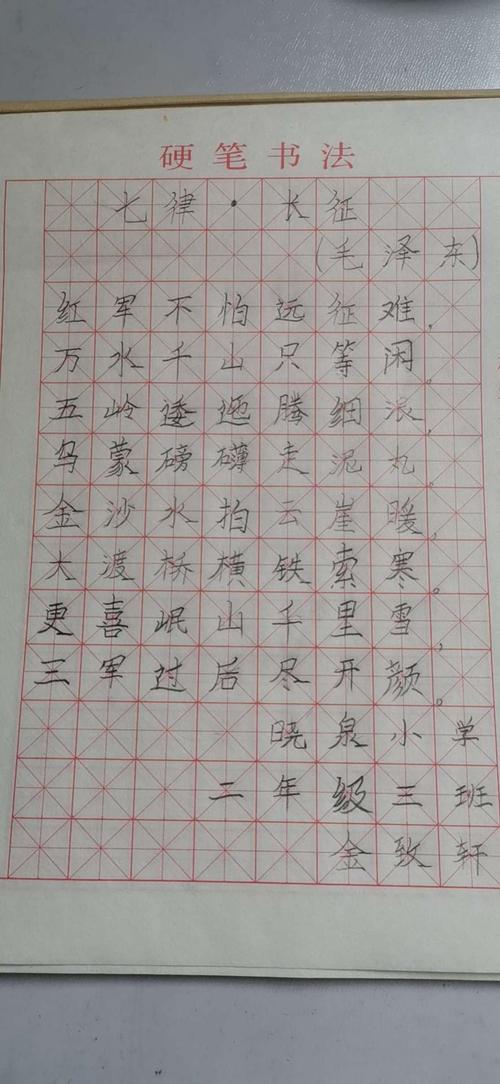 硬笔书法
七律·长征
(毛泽东)
红军不怕远征难,
万水千山只等闲。
五岭逶迤腾细浪,
乌蒙磅礴走泥丸。
金沙水拍云崖暖,
大渡桥横铁索寒。
更喜岷山千里雪,
三军过后尽开颜。
晓泉小学
二年级三班
金致轩